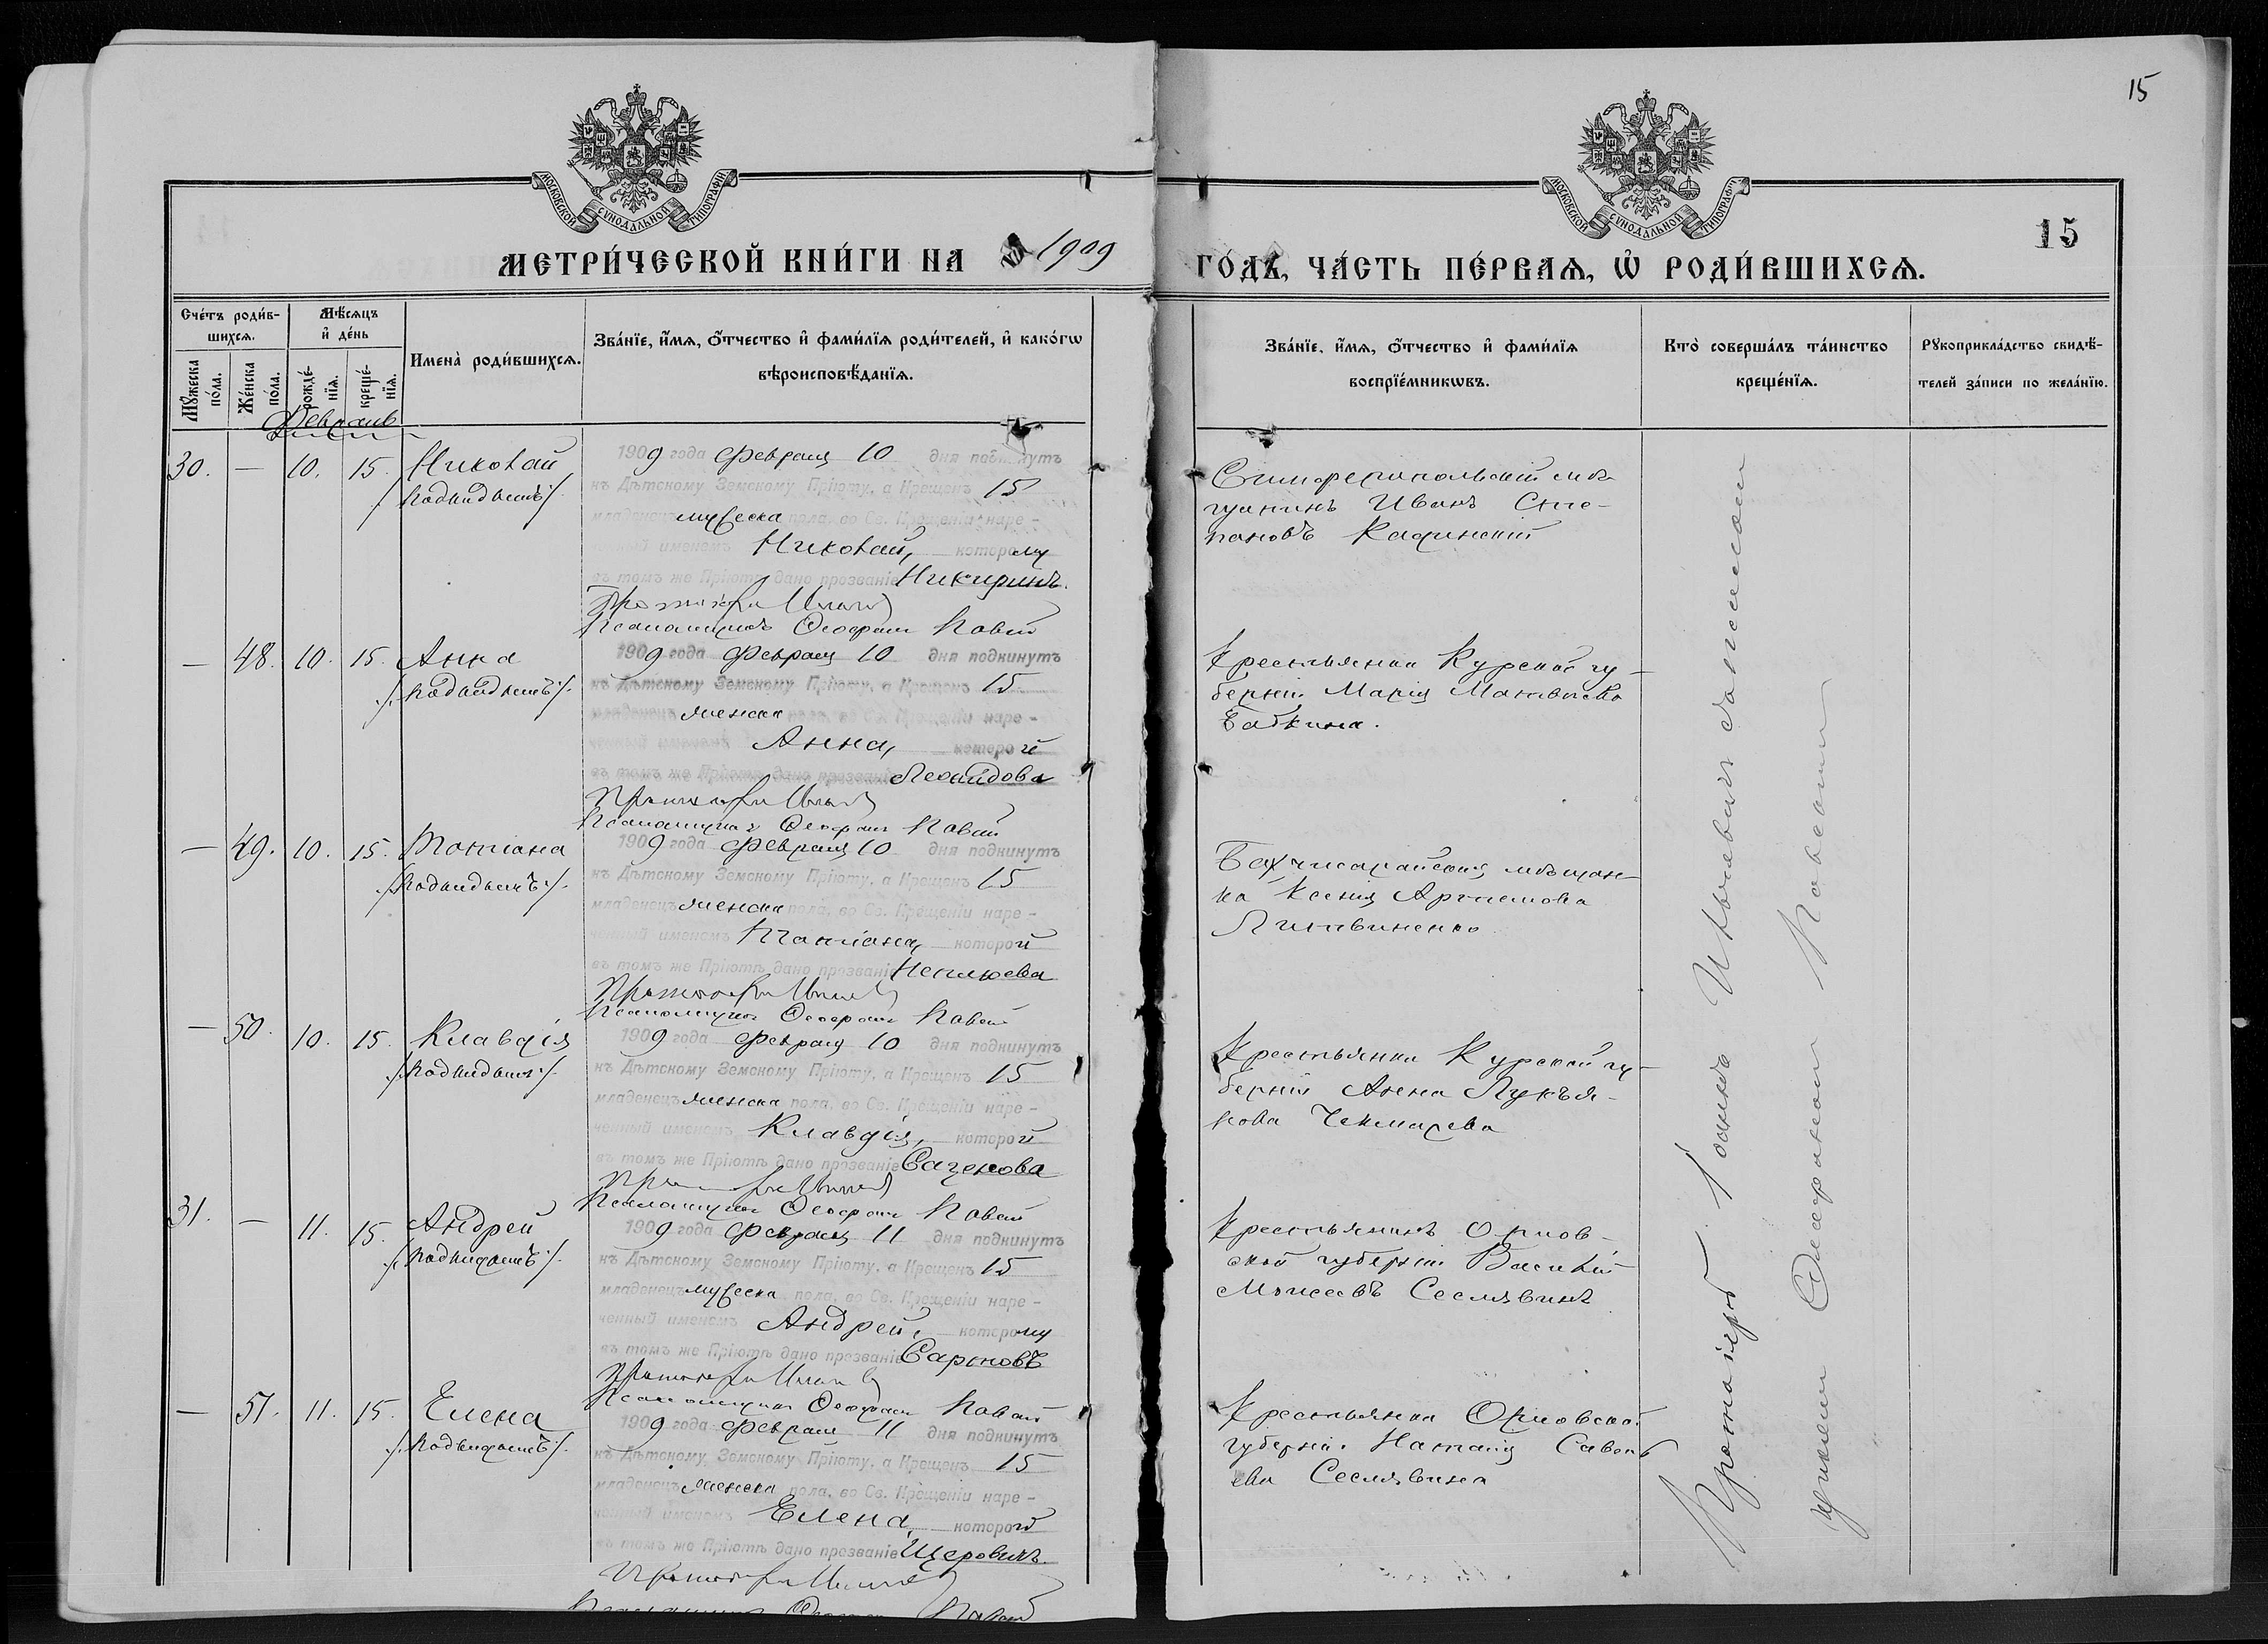 15
МОСКОВСКОЙ СѴНОДАЛЬНОЙ ТИПОГРАФІИ
МОСКОВСКОЙ СѴНОДАЛЬНОЙ ТИПОГРАФІИ
15
МЕТРИ́ЧЕСКОЙ КНИ́ГИ НА 1909
ГО́ДЪ, ЧА́СТЬ ПЕ́РВАѦ, Ѽ РОДИ́ВШИХСѦ.
Сче́тъ роди́в-
шихсѧ.
Мꙋ́жеска по́ла.
Же́нска по́ла.
Мѣ́сѧцъ
и҆ де́нь
рожде́-
нїѧ.
креще́-
нїѧ.
Имена̀ роди́вшихсѧ.
Зва́нїе, и҆́мѧ, ѻ҆́тчество и҆ фами́лїѧ роди́телей, и҆ како́гѡ
вѣроисповѣ́данїѧ.
Зва́нїе, и҆́мѧ, ѻ҆́тчество и҆ фами́лїѧ
воспрїе́мникѡвъ.
Кто̀ соверша́лъ та́инство
креще́нїѧ.
Рꙋкоприкла́дство свидѣ́-
телей за́писи по жела́нїю.
Февраль
30. — 10. 15. Николай
/Подкидышъ/.
1909 года Февраля 10 дня подкинутъ
къ Дѣтскому Земскому Пріюту, а Крещенъ 15
младенецъ мужеска пола, во Св. Крещеніи наре-
ченный именемъ Николай, которому
въ томъ же Пріютѣ дано прозваніе
Псаломщикъ Ѳеофанъ
Симферопольскій мѣ-
щанинъ Иванъ Сте-
пановъ
— 48. 10. 15. Анна
/Подкидышъ/.
1909 года Февраля 10 дня подкинутъ
къ Дѣтскому Земскому Пріюту, а Крещенъ 15
младенецъ женска пола, во Св. Крещеніи наре-
ченный именемъ Анна, которой
въ томъ же Пріютѣ дано прозваніе Леонидова
Псаломщикъ Ѳеофанъ
Крестьянка Курской гу-
берніи Марія Матвѣева
Бабкина.
— 49. 10. 15. Татіана
/Подкидышъ/.
1909 года Февраля 10 дня подкинутъ
къ Дѣтскому Земскому Пріюту, а Крещенъ 15
младенецъ женска пола, во Св. Крещеніи наре-
ченный именемъ Татіана, которой
въ томъ же Пріютѣ дано прозваніе Неплюева
Псаломщикъ Ѳеофанъ
Бахчисарайская мѣщан-
ка Ксенія Артемова
Литвиненко
— 50. 10. 15. Клавдія
/Подкидышъ/.
1909 года Февраля 10 дня подкинутъ
къ Дѣтскому Земскому Пріюту, а Крещенъ 15
младенецъ женска пола, во Св. Крещеніи наре-
ченный именемъ Клавдія, которой
въ томъ же Пріютѣ дано прозваніе
Псаломщикъ Ѳеофанъ
Крестьянка Курской гу-
берніи Анна Лукья-
нова Чекмарева
31. — 11. 15. Андрей
/Подкидышъ/.
1909 года Февраля 11 дня подкинутъ
къ Дѣтскому Земскому Пріюту, а Крещенъ 15
младенецъ мужеска пола, во Св. Крещеніи наре-
ченный именемъ Андрей, которому
въ томъ же Пріютѣ дано прозваніе
Псаломщикъ Ѳеофанъ
Крестьянинъ Орлов-
ской губерніи Василій
Моисеевъ Сеславинъ
— 51. 11. 15. Елена
/Подкидышъ/.
1909 года Февраля 11 дня подкинутъ
къ Дѣтскому Земскому Пріюту, а Крещенъ 15
младенецъ женска пола, во Св. Крещеніи наре-
ченный именемъ Елена, которой
въ томъ же Пріютѣ дано прозваніе
Крестьянка Орловской
губерніи Наталія Савель
ева Сеславина
Протоіерей Іоаннъ